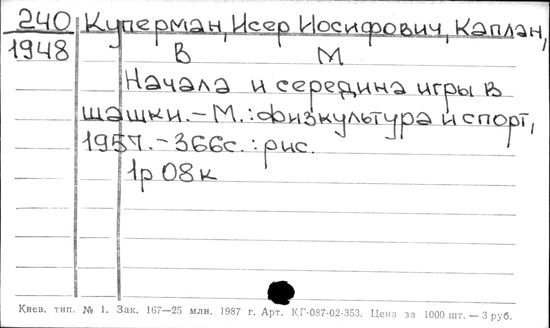 240 Куперман, Исер Иосифович, Каплан,
1948 В М
Начала и середина игры в
шашки. – М. : Физкультура и спорт,
1957. – 366с. : рис.
1р 08к
Киев. тип. № 1. Зак. 167—25 млн. 1987 г. Арт. КГ-087-02-353. Цена за 1000 шт. — 3 руб.